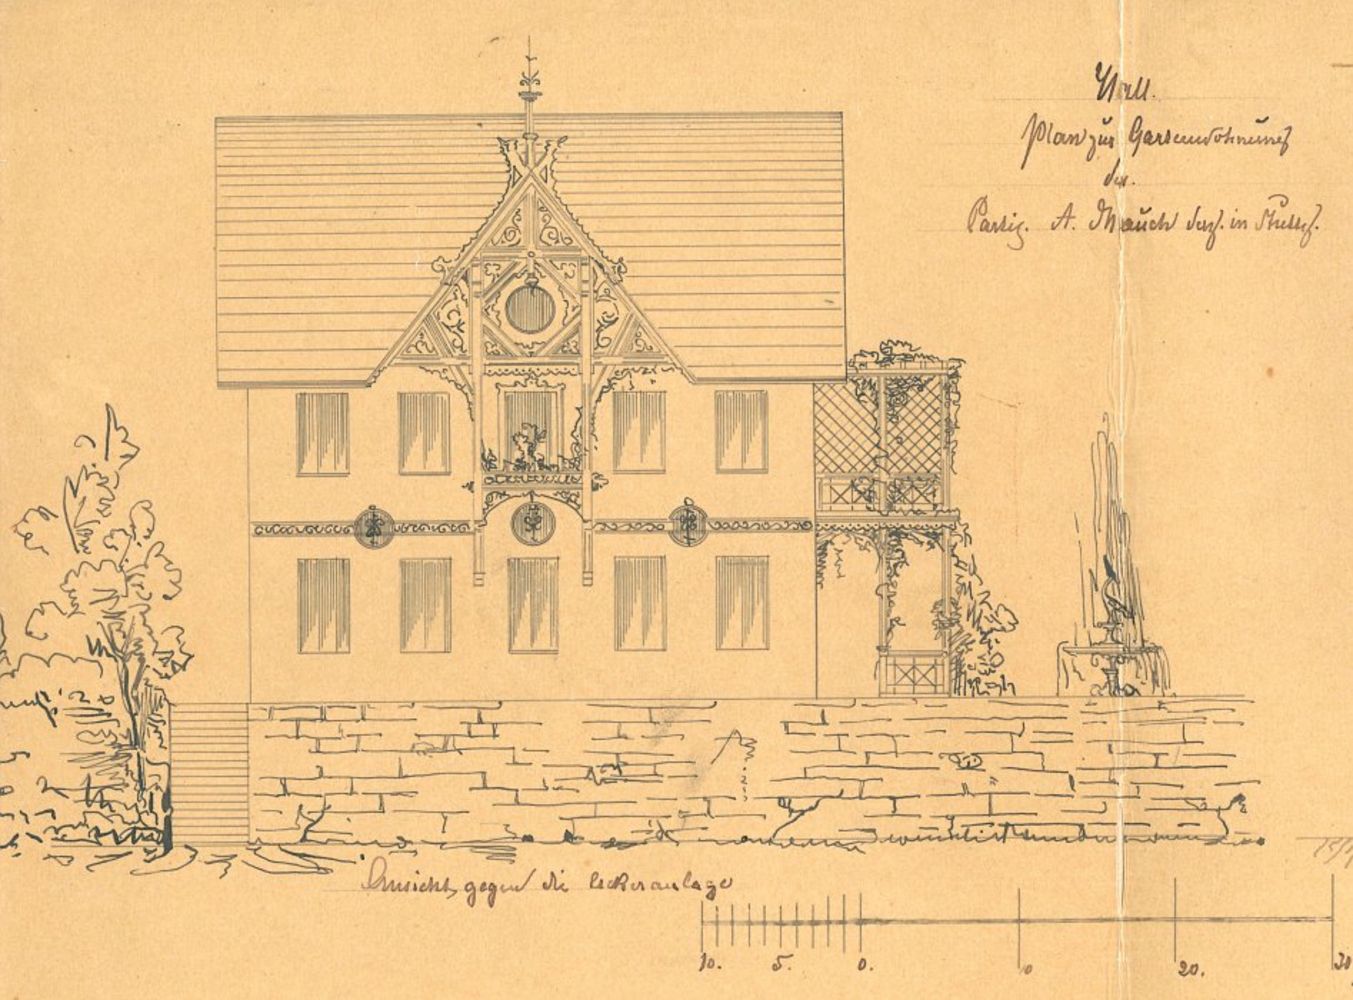 Hall.
Plan zur Gartenwohnung
des
Partiz. A. Mauch in Stuttg.
Ansicht gegen die Ackeranlage
10. 5. 0. 10 20. 30